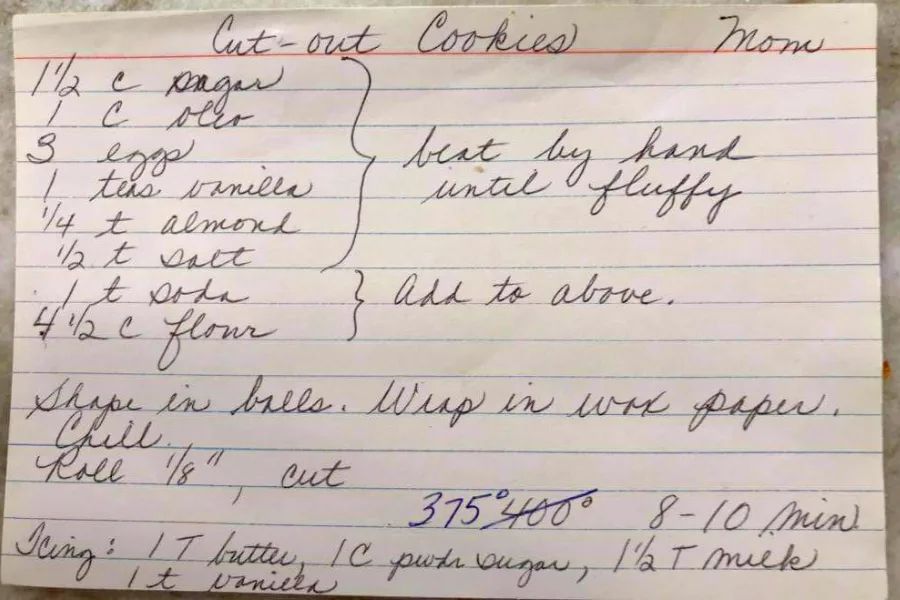 Cut-out Cookies Mom
1 1/2 c sugar
1 C oleo
3 eggs
1 teas vanilla
1/4 t almond
1/2 t salt
beat by hand
until fluffy
1 t soda
4 1/2 c flour
Add to above.
Shape in balls. Wrap in wax paper.
Chill.
Roll 1/8", cut
375° 400° 8-10 min.
Icing: 1 T butter, 1 C pwdr sugar, 1 1/2 T milk
1 t vanilla